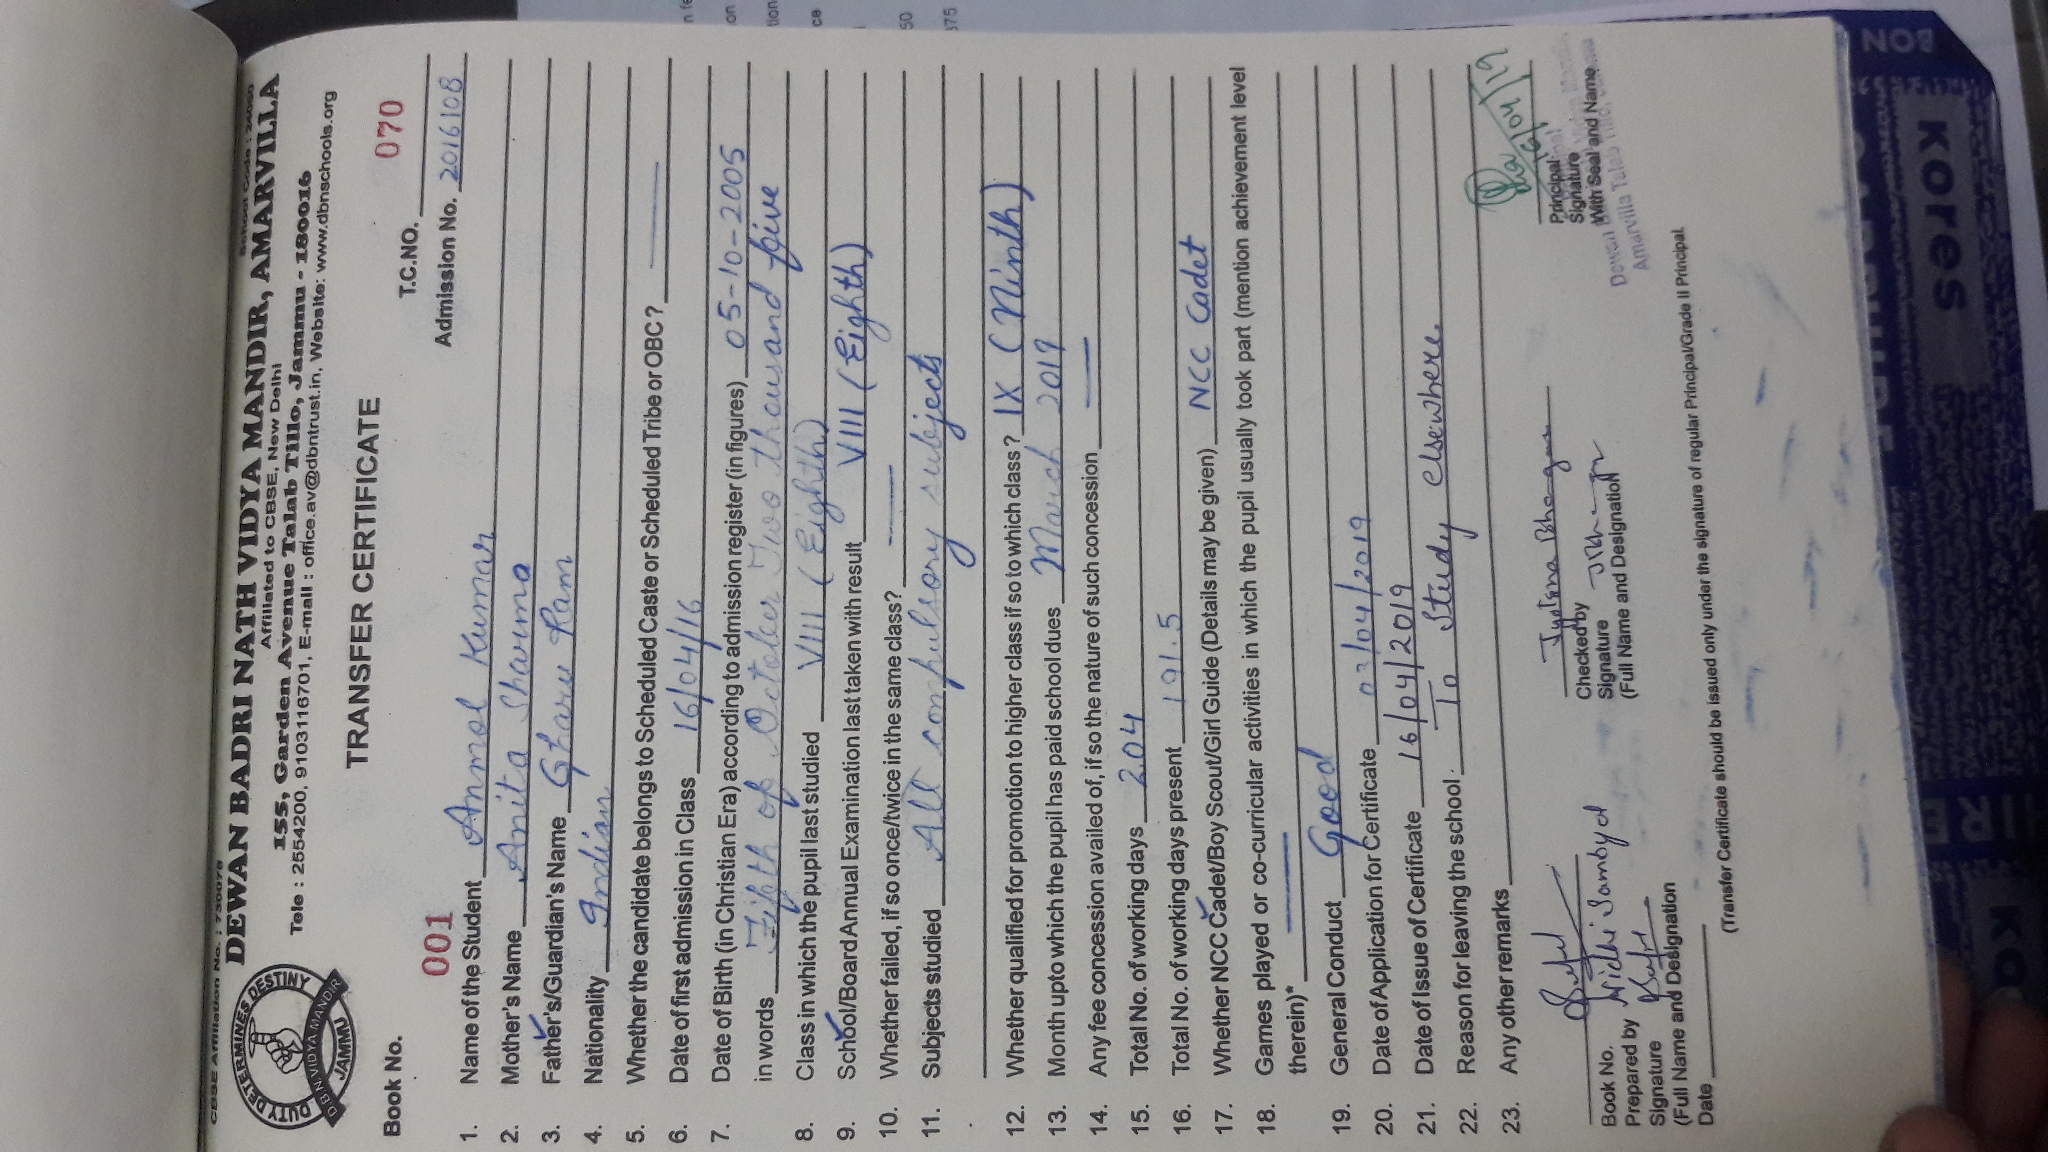 CBSE Affiliation No. : 730078 School Code : 24060
DEWAN BADRI NATH VIDYA MANDIR, AMARVILLA
Affiliated to CBSE, New Delhi
155, Garden Avenue Talab Tillo, Jammu - 180016
Tele : 2554200, 9103116701, E-mail : office.av@dbntrust.in, Website: www.dbnschools.org
DUTY DETERMINES DESTINY
D.B.N. VIDYA MANDIR
JAMMU
TRANSFER CERTIFICATE
Book No. 001 T.C.NO. 070
Admission No. 2016108
1. Name of the Student Anmol Kumar
2. Mother's Name Anita Sharma
3. Father's/Guardian's Name Gharu Ram
4. Nationality Indian
5. Whether the candidate belongs to Scheduled Caste or Scheduled Tribe or OBC? —
6. Date of first admission in Class 16/04/16
7. Date of Birth (in Christian Era) according to admission register (in figures) 05-10-2005
in words Fifth of October Two thousand five
8. Class in which the pupil last studied VIII (Eighth)
9. School/Board Annual Examination last taken with result VIII (Eighth)
10. Whether failed, if so once/twice in the same class? —
11. Subjects studied All compulsory subjects
12. Whether qualified for promotion to higher class if so to which class? IX (Ninth)
13. Month upto which the pupil has paid school dues March 2019
14. Any fee concession availed of, if so the nature of such concession —
15. Total No. of working days 204
16. Total No. of working days present 191.5
17. Whether NCC Cadet/Boy Scout/Girl Guide (Details may be given) NCC Cadet
18. Games played or co-curricular activities in which the pupil usually took part (mention achievement level
therein)* —
19. General Conduct Good
20. Date of Application for Certificate 03/04/2019
21. Date of Issue of Certificate 16/04/2019
22. Reason for leaving the school To Study elsewhere.
23. Any other remarks
16/04/19
Book No.
Prepared by Nidhi Sambyal
Signature
(Full Name and Designation
Date
Jyotsna Bhagun
Checked by
Signature
(Full Name and Designation)
Principal
Signature
With Seal and Name
Amarvilla Talab Tillo
(Transfer Certificate should be issued only under the signature of regular Principal/Grade II Principal.
BON
Kores